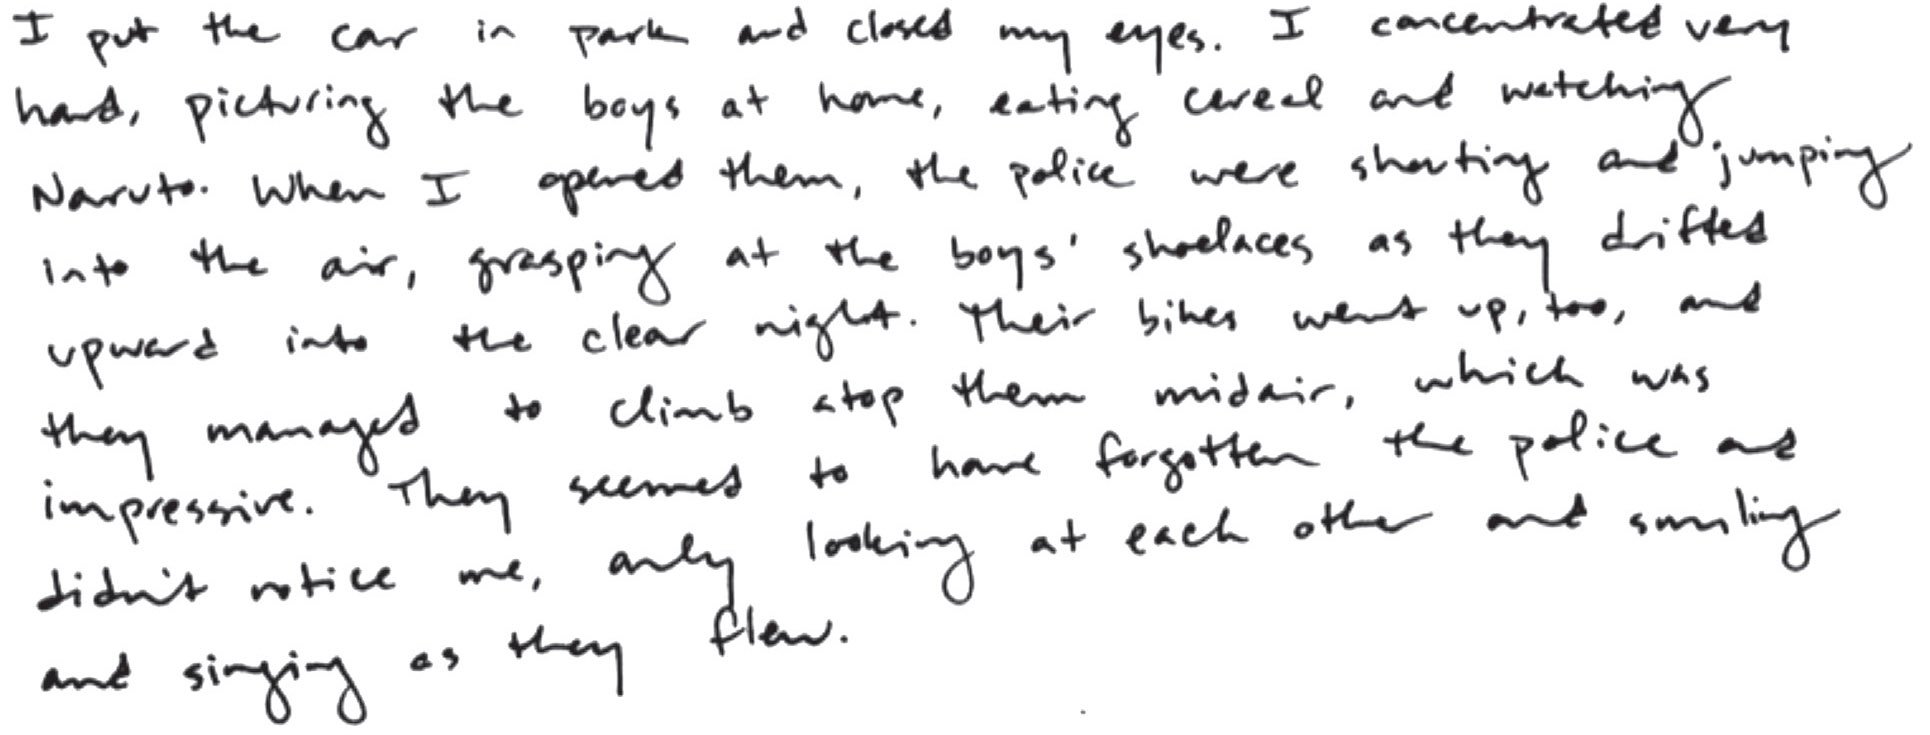 I put the car in park and closed my eyes. I concentrated very
hard, picturing the boys at home, eating cereal and watching
Naruto. When I opened them, the police were shouting and jumping
into the air, grasping at the boys' shoelaces as they drifted
upward into the clear night. Their bikes went up, too, and
they managed to climb atop them midair, which was
impressive. They seemed to have forgotten the police and
didn't notice me, only looking at each other and smiling
and singing as they flew.